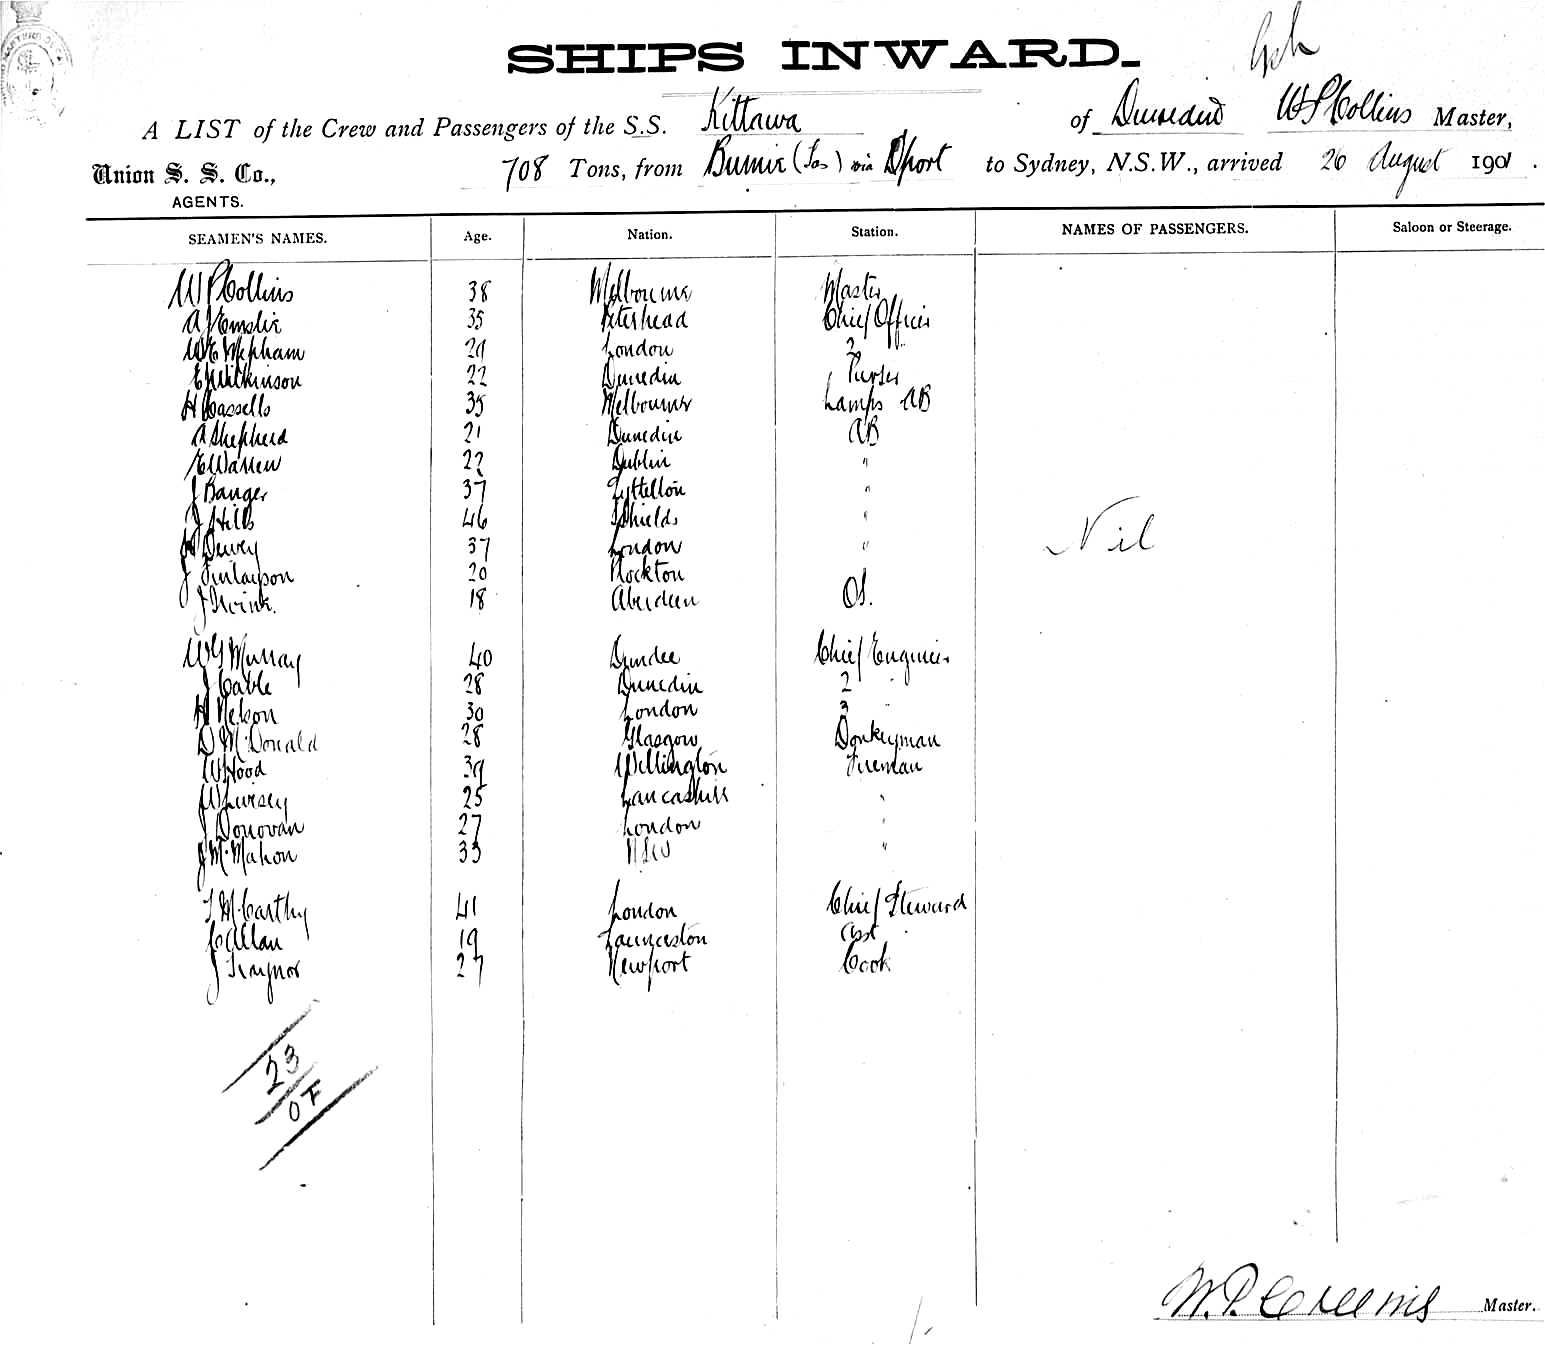 SHIPS INWARD.
A LIST of the Crew and Passengers of the S.S. Kittawa of Dunedin W P Collins Master,
Union S. S. Co., 708 Tons, from Burnie (Tas) via Dport to Sydney, N.S.W., arrived 26 August 1901.
AGENTS.
SEAMEN'S NAMES. Age. Nation. Station. NAMES OF PASSENGERS. Saloon or Steerage.
W P Collins 38 Melbourne Master
A J Emslie 35 Peterhead Chief Officer
W E Mepham 29 London 2 "
E Wilkinson 22 Dunedin Purser
H Cassells 35 Melbourne Lamps AB
A Shepherd 21 Dunedin AB
E Warren 22 Dublin "
J Banger 37 Lyttelton "
J Hills 46 Shields "
Dewey 37 London "
Nil
J Finlayson 20 Plockton
J Irvine. 18 Aberdeen OS.
W G Murray 40 Dundee Chief Engineer
J Cable 28 Dunedin 2 "
H Nelson 30 London 3 "
D McDonald 28 Glasgow Donkeyman
W Hood 39 Wellington Fireman
W Livsey 25 Lancashire "
J Donovan 27 London "
J McMahon 33 NSW "
T McCarthy 41 London Chief Steward
C Allan 19 Launceston Asst "
J Traynor 27 Newport Cook
23
OF
W. P. Collins Master.